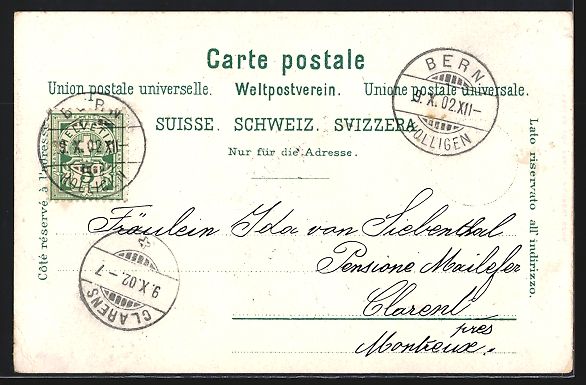 Carte postale
Union postale universelle. Weltpostverein. Unione postale universale.
SUISSE. SCHWEIZ. SVIZZERA.
Nur für die Adresse.
Côté réservé à l'adresse.
Lato riservato all' indirizzo.
BERN
9. X. 02. XII—
HOLLIGEN
BERN
9. X. 02. XII
HOLLIGEN
5
9. X. 02 – 7
CLARENS
Fräulein Ida von Siebenthal
Pensione Mailefer
Clarens
près
Montreux.